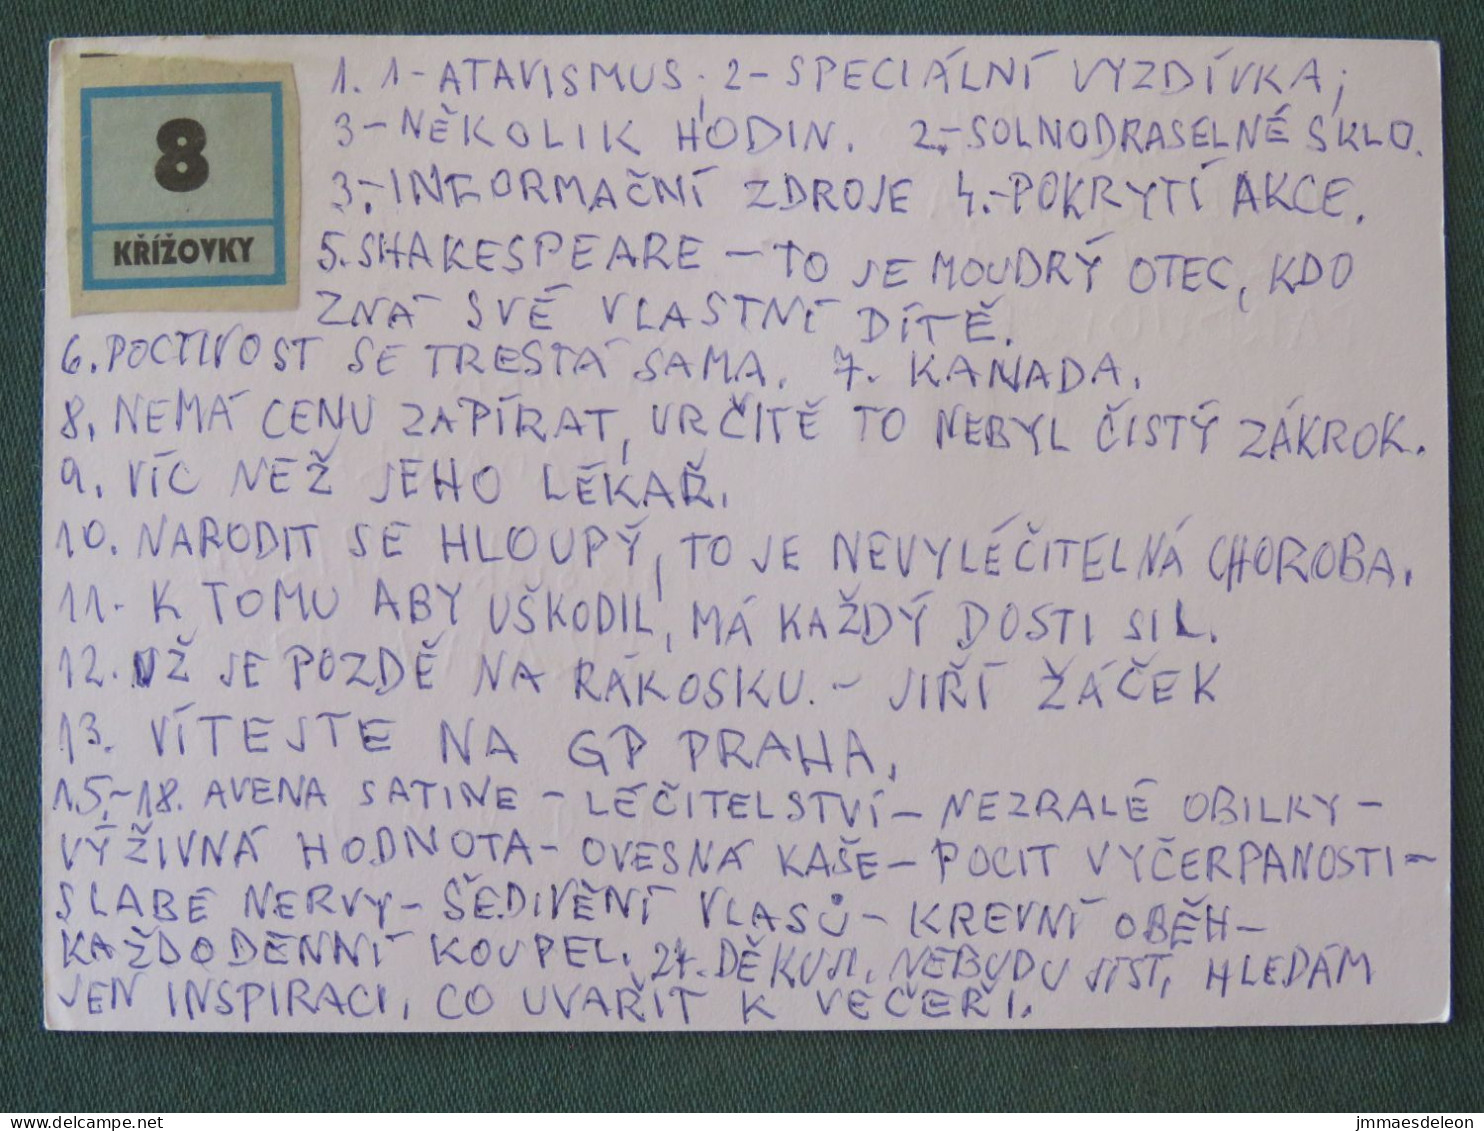 8
KŘÍŽOVKY
1. 1-ATAVISMUS; 2-SPECIÁLNÍ VYZDÍVKA;
3-NĚKOLIK HODIN. 2.-SOLNODRASELNÉ SKLO.
3.-INFORMAČNÍ ZDROJE 4.-POKRYTÍ AKCE.
5. SHAKESPEARE - TO JE MOUDRÝ OTEC, KDO
ZNÁ SVÉ VLASTNÍ DÍTĚ.
6. POCTIVOST SE TRESTÁ SAMA. 7. KANADA.
8. NEMÁ CENU ZAPÍRAT, URČITĚ TO NEBYL ČISTÝ ZÁKROK.
9. VÍC NEŽ JEHO LÉKAŘ.
10. NARODIT SE HLOUPÝ, TO JE NEVYLÉČITELNÁ CHOROBA.
11- K TOMU ABY UŠKODIL, MÁ KAŽDÝ DOSTI SIL.
12. UŽ JE POZDĚ NA RÁKOSKU. - JIŘÍ ŽÁČEK
13. VÍTEJTE NA GP PRAHA.
15-18. AVENA SATINE - LÉČITELSTVÍ - NEZRALÉ OBILKY -
VÝŽIVNÁ HODNOTA - OVESNÁ KAŠE - POCIT VYČERPANOSTI -
SLABÉ NERVY - ŠEDIVĚNÍ VLASŮ - KREVNÍ OBĚH -
KAŽDODENNÍ KOUPEL. 27. DĚKUJI, NEBUDU JÍST, HLEDÁM
JEN INSPIRACI, CO UVAŘIT K VEČEŘI.
jmmaesdeleon
www.delcampe.net